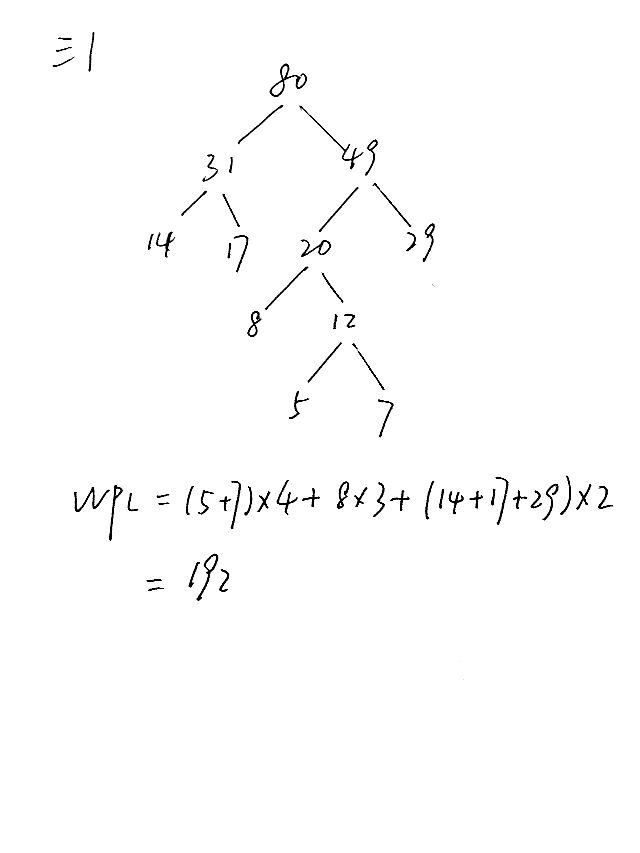 三1
80
31 49
14 17 20 29
8 12
5 7
WPL = (5+7)×4+8×3+(14+17+29)×2
= 192